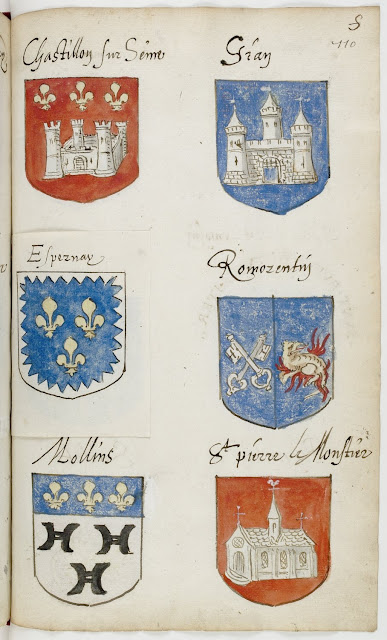 8
110
Chastillon sur Seine
Gian
Espernay
Romorentin
Mollins
St pierre le Monstier